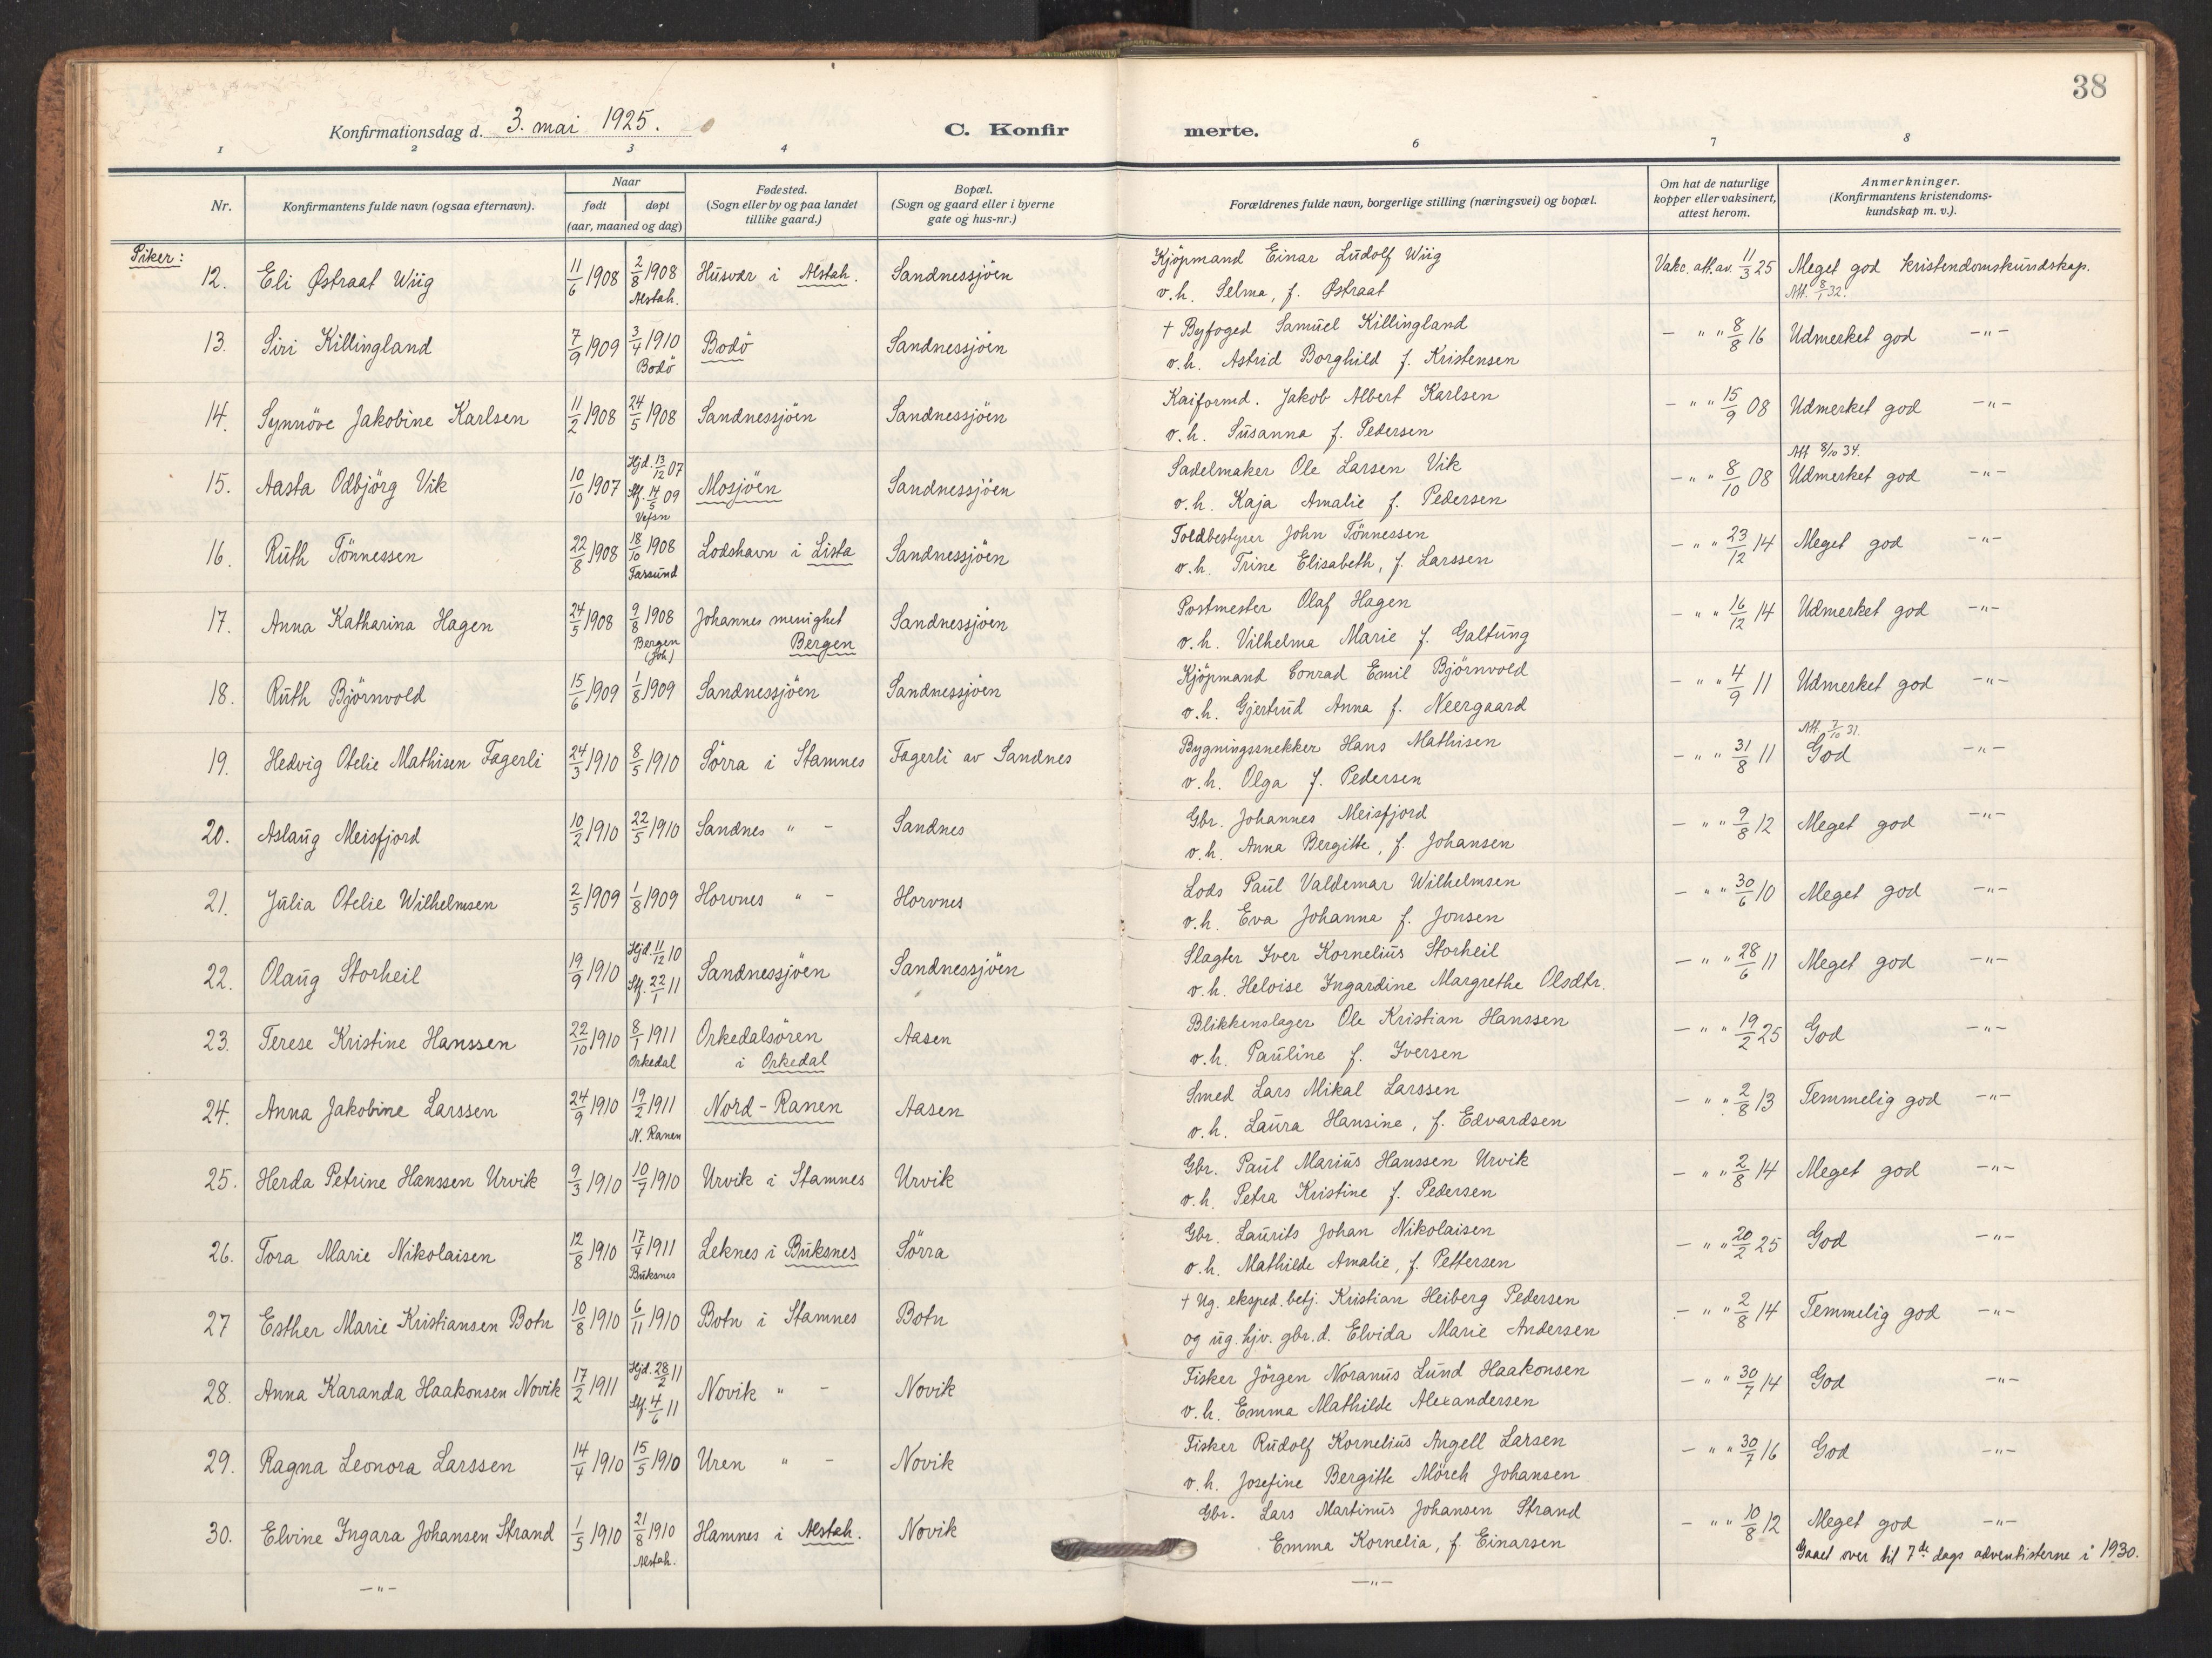 38
Konfirmationsdag d. 3. mai 1925.
C. Konfirmerte.
1 2 3 4 6 7 8
Nr.
Konfirmantens fulde navn (ogsaa efternavn).
Naar
født
døpt
(aar, maaned og dag)
Fødested.
(Sogn eller by og paa landet
tillike gaard.)
Bopæl.
(Sogn og gaard eller i byerne
gate og hus-nr.)
Forældrenes fulde navn, borgerlige stilling (næringsvei) og bopæl.
Om hat de naturlige
kopper eller vaksinert,
attest herom.
Anmerkninger.
(Konfirmantens kristendoms-
kundskap m. v.).
Piker:
12. Eli Østraat Wiig 11/6 1908 2/8 1908 Alstah. Husvær i Alstah. Sandnessjöen Kjöpmand Einar Ludolf Wiig Vakc. att. av. 11/3 25 Meget god kristendomskundskap.
v. h. Selma, f. Østraat Att. 8/1 32.
13. Siri Killingland 7/9 1909 3/4 1910 Bodö Bodö Sandnessjöen † Byfoged Samuel Killingland — " " 8/8 16 Udmerket god —"—
v. h. Astrid Borghild f. Kristensen
14. Synnöve Jakobine Karlsen 11/2 1908 24/5 1908 Sandnessjöen Sandnessjöen Kaiformd. Jakob Albert Karlsen — " " 15/9 08 Udmerket god —"—
v. h. Susanna f. Pedersen
Att 8/10 34.
15. Aasta Odbjörg Vik 10/10 1907 Hjd. 13/12 07 Stf. 14/5 09 Vefsn Mosjöen Sandnessjöen Sadelmaker Ole Larsen Vik — " " 8/10 08 Udmerket god —"—
v. h. Kaja Amalie f. Pedersen
16. Ruth Tönnessen 22/8 1908 18/10 1908 Farsund Lodshavn i Lista Sandnessjöen Toldbestyrer John Tönnessen — " " 23/12 14 Meget god —"—
v. h. Trine Elisabeth, f. Larssen
17. Anna Katharina Hagen 24/5 1908 9/8 1908 Bergen (Joh) Johannes menighet Bergen Sandnessjöen Postmester Olaf Hagen — " " 16/12 14 Udmerket god —"—
v. h. Vilhelma Marie f. Galtung
18. Ruth Björnvold 15/6 1909 1/8 1909 Sandnessjöen Sandnessjöen Kjöpmand Conrad Emil Björnvold — " " 4/9 11 Udmerket god —"—
v. h. Gjertrud Anna f. Neergaard
Att. 7/10 31.
19. Hedvig Otelie Mathisen Fagerli 24/3 1910 8/5 1910 Sörra i Stamnes Fagerli av Sandnes Bygningssnekker Hans Mathisen — " " 31/8 11 God —"—
v. h. Olga f. Pedersen
20. Aslaug Meisfjord 10/2 1910 22/5 1910 Sandnes " - Sandnes Gbr. Johannes Meisfjord — " " 9/8 12 Meget god —"—
v. h. Anna Bergitte, f. Johansen
21. Julia Otelie Wilhelmsen 2/5 1909 1/8 1909 Horvnes " - Horvnes Lods Paul Valdemar Wilhelmsen — " " 30/6 10 Meget god —"—
v. h. Eva Johanna f. Jonsen
22. Olaug Storheil 19/9 1910 Hjd. 11/12 10 Stf. 22/1 11 Sandnessjöen Sandnessjöen Slagter Iver Kornelius Storheil — " " 28/6 11 Meget god —"—
v. h. Heloise Ingardine Margrethe Olsdtr.
23. Terese Kristine Hanssen 22/10 1910 8/1 1911 Orkedal Orkedalsören i Orkedal Aasen Blikkenslager Ole Kristian Hanssen — " " 19/2 25 God —"—
v. h. Pauline f. Iversen
24. Anna Jakobine Larssen 24/9 1910 19/2 1911 N. Ranen Nord-Ranen Aasen Smed Lars Mikal Larssen — " " 2/8 13 Temmelig god —"—
v. h. Laura Hansine, f. Edvardsen
25. Herda Petrine Hanssen Urvik 9/3 1910 10/7 1910 Urvik i Stamnes Urvik Gbr. Paul Marius Hanssen Urvik — " " 2/8 14 Meget god —"—
v. h. Petra Kristine f. Pedersen
26. Tora Marie Nikolaisen 12/8 1910 17/4 1911 Buksnes Leknes i Buksnes Sörra Gbr. Laurits Johan Nikolaisen — " " 20/2 25 God —"—
v. h. Mathilde Amalie, f. Pettersen
27 Esther Marie Kristiansen Botn 10/8 1910 6/11 1910 Botn i Stamnes Botn † Ug. eksped. betj. Kristian Heiberg Pedersen — " " 2/8 14 Temmelig god —"—
og ug. hjv. gbr. d. Elvida Marie Andersen
28. Anna Karanda Haakonsen Novik 17/2 1911 Hjd. 28/2 11 Stf. 4/6 11 Novik " - Novik Fisker Jörgen Noranus Lund Haakonsen — " " 30/7 14 God —"—
v. h. Emma Mathilde Alexandersen
29. Ragna Leonora Larssen 14/4 1910 15/5 1910 Uren " - Novik Fisker Rudolf Kornelius Angell Larsen — " " 30/7 16 God —"—
v. h. Josefine Bergitte Mörch Johansen
30. Elvine Ingara Johansen Strand 1/5 1910 21/8 1910 Alstah. Hamnes i Alstah. Novik Gbr. Lars Martinus Johansen Strand — " " 10/8 12 Meget god —"—
Emma Kornelia, f. Einarsen Gaaet over til 7de dags adventisterne i 1930.
—"— —"—